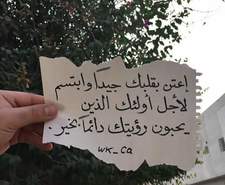 إعتن بقلبك جيدًا وابتسم
لأجل أولئك الذين
يحبون رؤيتك دائمًا بخير.
WK_Ca